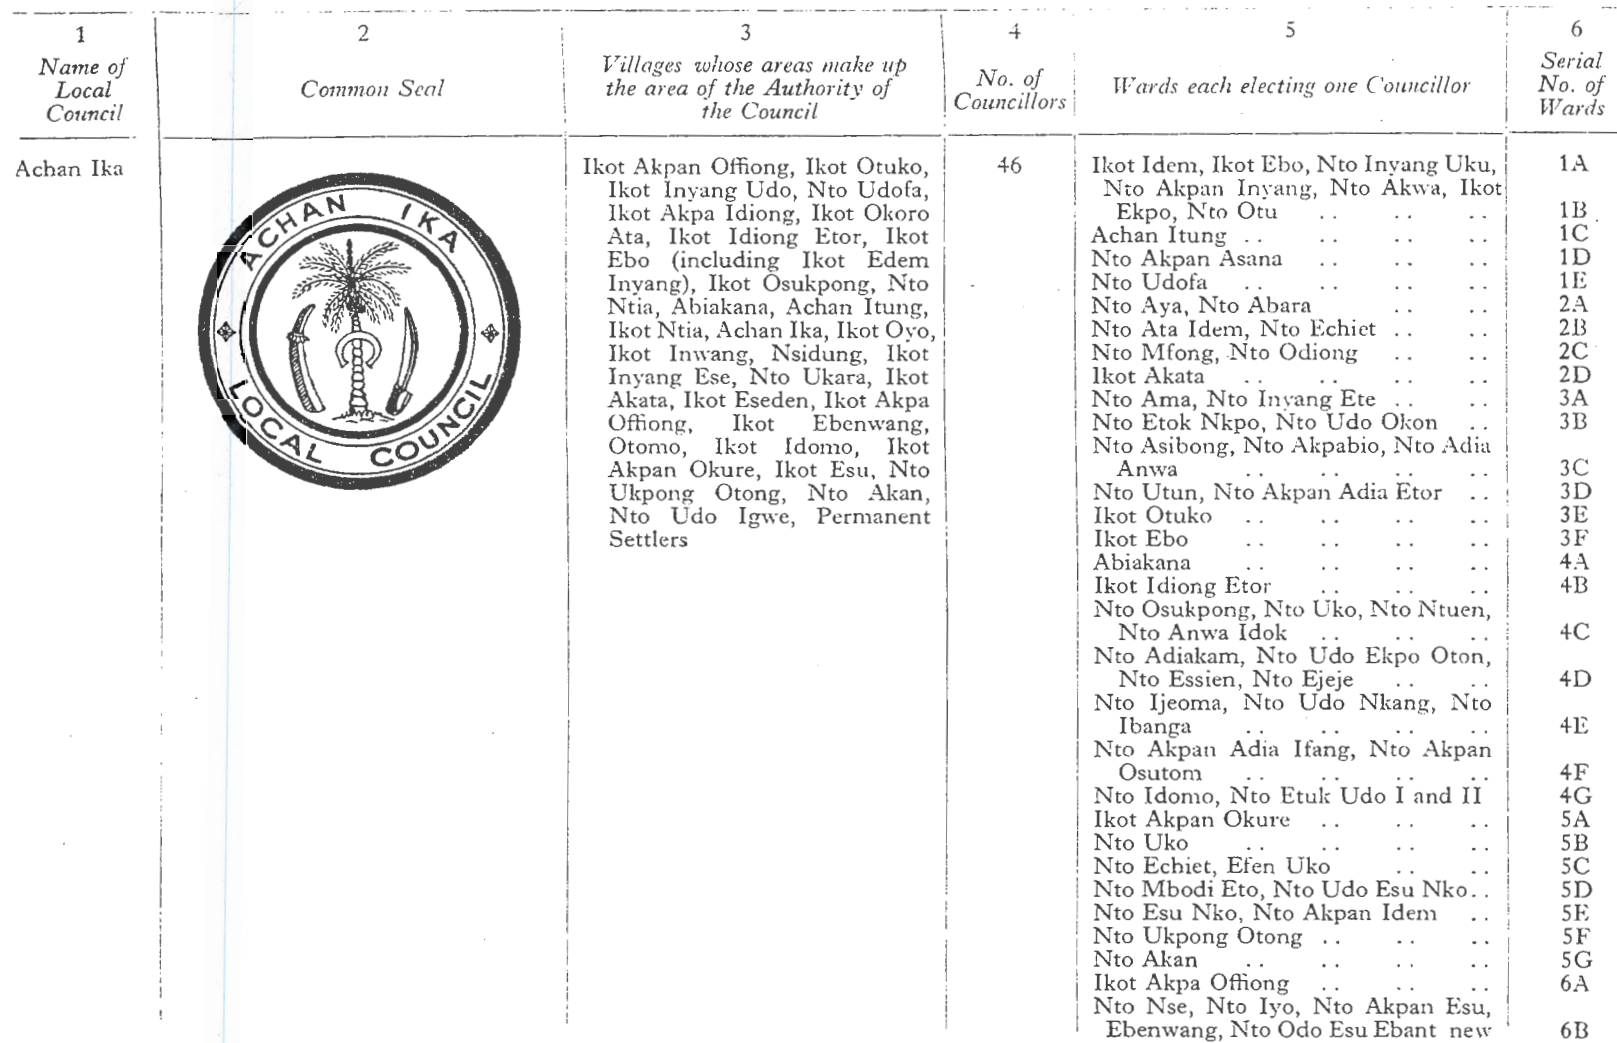 1 2 3 4 5 6
Name of Local Council
Common Seal
Villages whose areas make up the area of the Authority of the Council
No. of Councillors
Wards each electing one Councillor
Serial No. of Wards
Achan Ika
ACHAN IKA
LOCAL COUNCIL
Ikot Akpan Offiong, Ikot Otuko,
Ikot Inyang Udo, Nto Udofa,
Ikot Akpa Idiong, Ikot Okoro
Ata, Ikot Idiong Etor, Ikot
Ebo (including Ikot Edem
Inyang), Ikot Osukpong, Nto
Ntia, Abiakana, Achan Itung,
Ikot Ntia, Achan Ika, Ikot Oyo,
Ikot Inwang, Nsidung, Ikot
Inyang Ese, Nto Ukara, Ikot
Akata, Ikot Eseden, Ikot Akpa
Offiong, Ikot Ebenwang,
Otomo, Ikot Idomo, Ikot
Akpan Okure, Ikot Esu, Nto
Ukpong Otong, Nto Akan,
Nto Udo Igwe, Permanent
Settlers
46
Ikot Idem, Ikot Ebo, Nto Inyang Uku, 1A
Nto Akpan Inyang, Nto Akwa, Ikot
Ekpo, Nto Otu .. .. .. 1B
Achan Itung .. .. .. .. 1C
Nto Akpan Asana .. .. .. 1D
Nto Udofa .. .. .. .. 1E
Nto Aya, Nto Abara .. .. 2A
Nto Ata Idem, Nto Echiet .. .. 2B
Nto Mfong, Nto Odiong .. .. 2C
Ikot Akata .. .. .. .. 2D
Nto Ama, Nto Inyang Ete .. .. 3A
Nto Etok Nkpo, Nto Udo Okon .. 3B
Nto Asibong, Nto Akpabio, Nto Adia
Anwa .. .. .. .. 3C
Nto Utun, Nto Akpan Adia Etor .. 3D
Ikot Otuko .. .. .. .. 3E
Ikot Ebo .. .. .. .. 3F
Abiakana .. .. .. .. 4A
Ikot Idiong Etor .. .. .. 4B
Nto Osukpong, Nto Uko, Nto Ntuen,
Nto Anwa Idok .. .. .. 4C
Nto Adiakam, Nto Udo Ekpo Oton,
Nto Essien, Nto Ejeje .. .. 4D
Nto Ijeoma, Nto Udo Nkang, Nto
Ibanga .. .. .. .. 4E
Nto Akpan Adia Ifang, Nto Akpan
Osutom .. .. .. .. 4F
Nto Idomo, Nto Etuk Udo I and II 4G
Ikot Akpan Okure .. .. .. 5A
Nto Uko .. .. .. .. 5B
Nto Echiet, Efen Uko .. .. 5C
Nto Mbodi Eto, Nto Udo Esu Nko.. 5D
Nto Esu Nko, Nto Akpan Idem .. 5E
Nto Ukpong Otong .. .. .. 5F
Nto Akan .. .. .. .. 5G
Ikot Akpa Offiong .. .. .. 6A
Nto Nse, Nto Iyo, Nto Akpan Esu,
Ebenwang, Nto Odo Esu Ebant new 6B